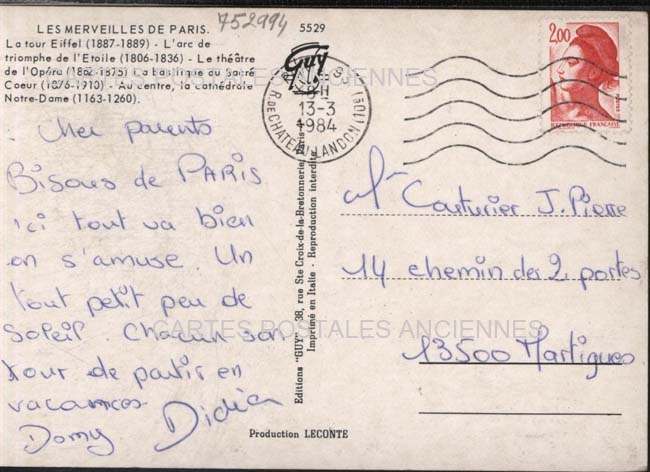 LES MERVEILLES DE PARIS.
752994
5529
La tour Eiffel (1887-1889) - L'arc de
triomphe de l'Etoile (1806-1836) - Le théâtre
de l'Opéra (1862-1875) - La basilique du Sacré
Coeur (1876-1910) - Au centre, la cathédrale
Notre-Dame (1163-1260).
CARTES POSTALES ANCIENNES
Guy
13-3
1984
R. DE CHATEAU LANDON (10E)
2,00
REPUBLIQUE FRANÇAISE
Cher parents
Bisous de PARIS
ici tout va bien
on s'amuse. Un
tout petit peu de
soleil. Chacun son
tour de partir en
vacances
Domy Didier
Editions "GUY", 38, rue Ste Croix-de-la-Bretonnerie, Paris
Imprimé en Italie - Reproduction interdite
Couturier J. Pierre
14 chemin des 2 portes
13500 Martigues
CARTES POSTALES ANCIENNES
Production LECONTE